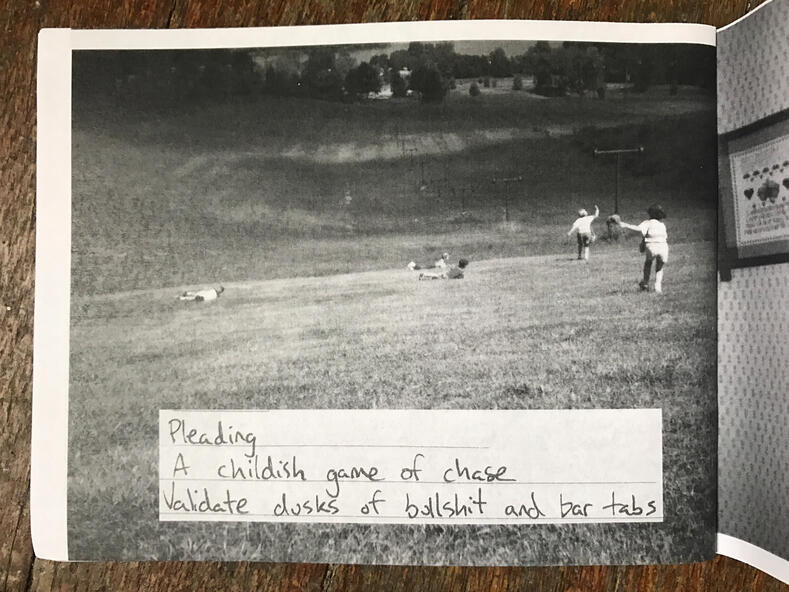 Pleading
A childish game of chase
Validate dusks of bullshit and bar tabs